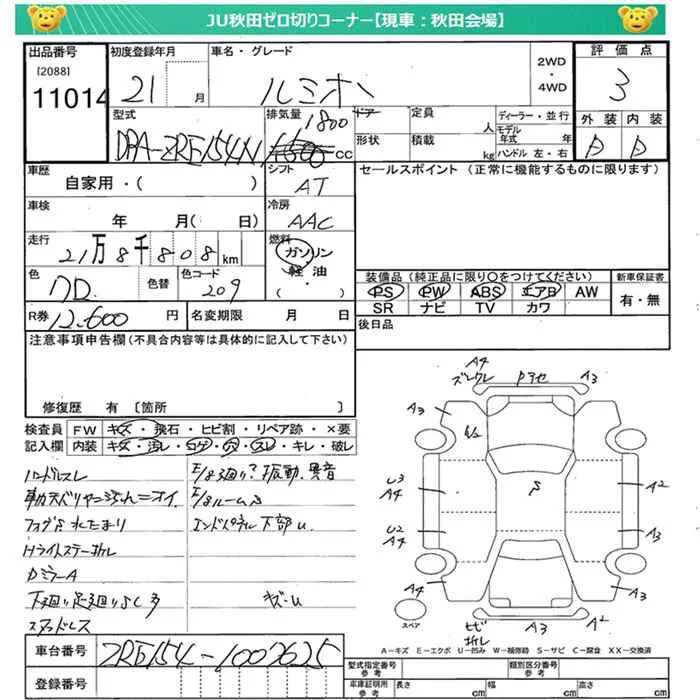 JU秋田ゼロ切りコーナー【現車：秋田会場】
出品番号
[2088]
11014
初度登録年月
21 月
車名・グレード
ルミオン
2WD
・
4WD
評価点
3
外装 内装
D D
型式
DBA-ZRE154N
排気量
1800
1500 cc
ドア
形状
定員
人
積載
kg
ディーラー・並行
モデル年式 年
ハンドル 左・右
車歴
自家用・( )
シフト
AT
セールスポイント (正常に機能するものに限ります)
車検
年 月( 日)
冷房
AAC
走行
21万8千808km
燃料
ガソリン
軽油
( )
色
色替
色コード
209
装備品 (純正品に限り〇をつけてください)
新車保証書
PS PW ABS エアB AW
SR ナビ TV カワ
有・無
R券
12,600 円
名変期限 月 日
後日品
注意事項申告欄 (不具合内容等は具体的に記入して下さい)
修復歴 有 〔箇所 〕
検査員記入欄
FW キズ・飛石・ヒビ割・リペア跡・×要
内装 キズ・汚レ・コゲ・穴・スレ・キレ・破レ
ハンドルスレ
水たまり
Dミラー A
下廻り足廻りサビ多
スタッドレス
F/8廻り?振動、異音
エンドパネル下部U
キズ・U
A4
A3
A3
U3
A4
A2
U2
A4
A3
A4
A3
S
ヒビ
A3
A2
スペア
A－キズ E－エクボ U－凹み W－補修跡 S－サビ C－腐食 XX－交換済
車台番号
ZRE154-1002625
登録番号
型式指定番号
参考
類別区分番号
参考
車庫証明用
参考
長さ cm
幅 cm
高さ cm